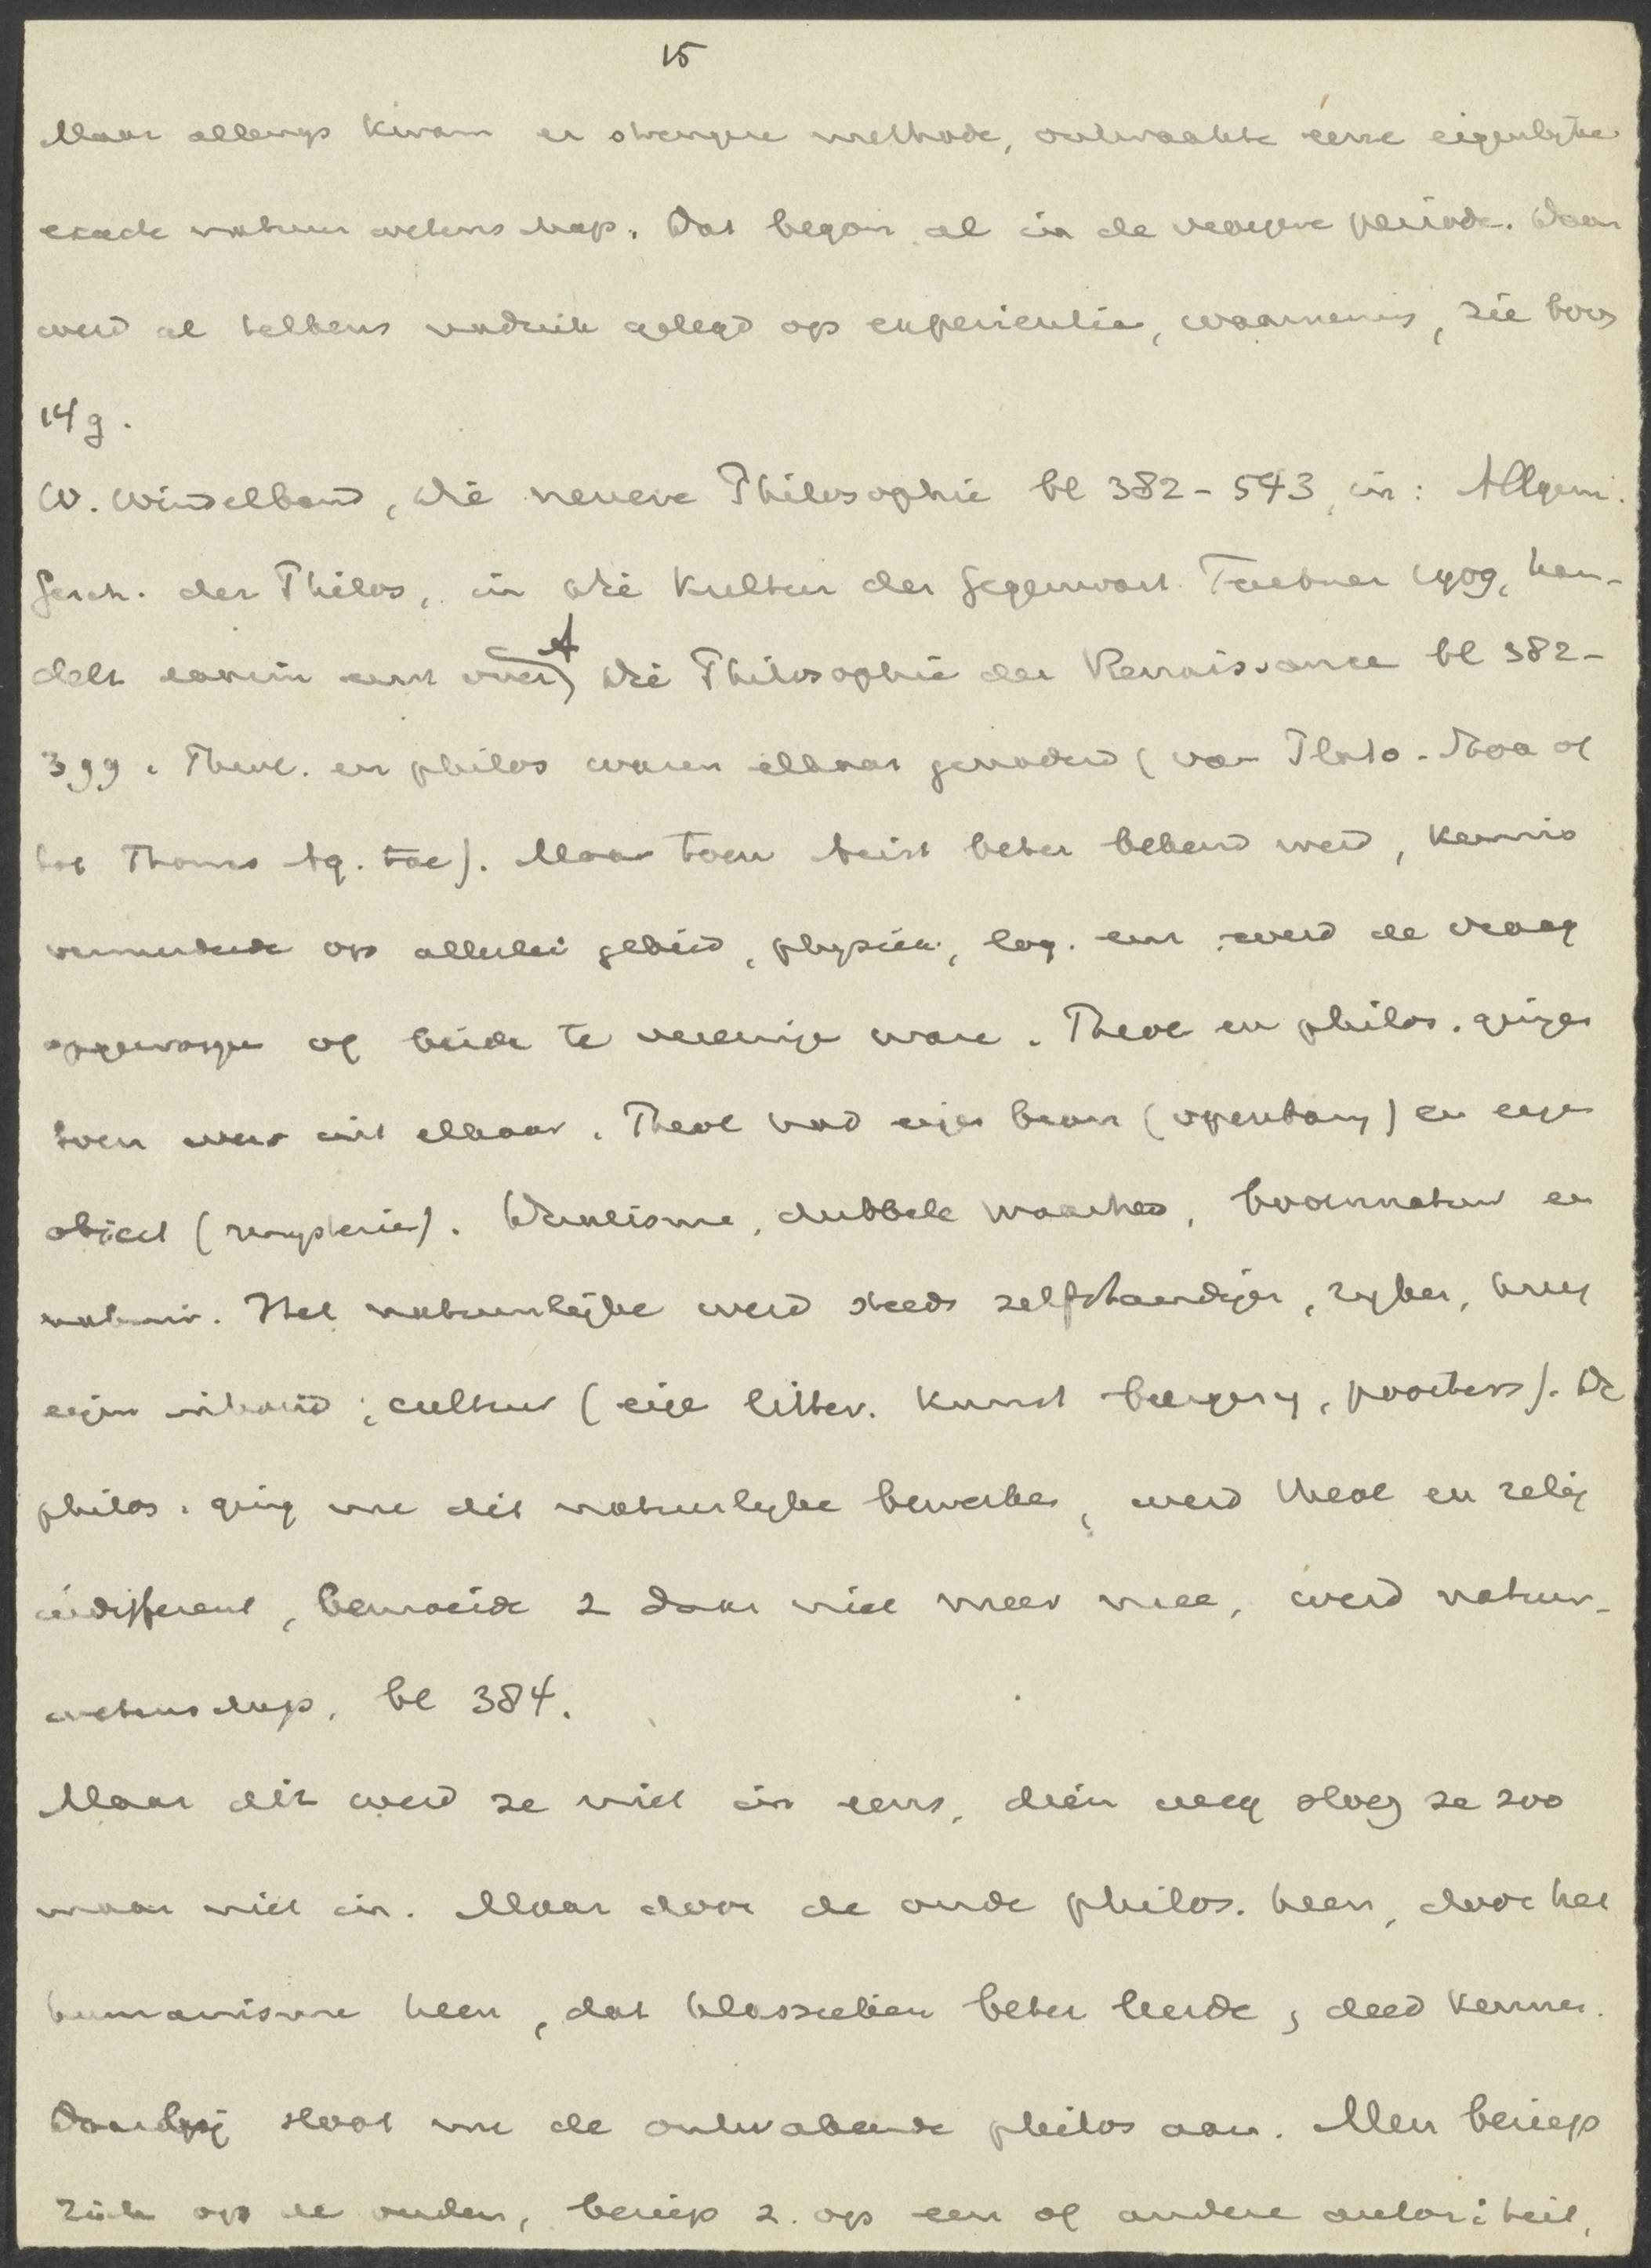 15
Maar allengs kwam er strengere methode, ontwaakte eerse eigenlyke
exacte natuurwetenschap. Dat begon al in de vroegere periode. Daar
werd al telkens nadruk gelegd op experientia, waarneming, zie boven
14g.
W. Windelband, Die neuere Philosophie bl 382-543, in: Allgem.
Gesch. der Philos, in Die Kultur der Gegenwart Teubner 1909, han-
delt daarin eerst over A) Die Philosophie der Renaissance bl 382-
399. Theol. en philos waren elkaar genaderd (van Plato - Stoa af
tot Thomas Aq. toe). Maar toen Arist beter bekend werd, kennis
vermeerderde op allerlei gebied, physica, log. enz werd de vraag
opgeworpen of beide te vereenige ware. Theol en philos. ginge
toen weer uit elkaar. Theol had eige bron (openbaring) en eige
object (mysterie). Dualisme, dubbele waarheid, bovennatuur en
natuur. Het natuurlijke werd steeds zelfstandiger, ryker, kreeg
eigen inhoud; cultuur (eige litter. kunst burgery, poorters). De
philos. ging nu dit natuurlyke bewerken, werd theol en relig
indifferent, bemoeide z daar niet meer mee, werd natuur-
wetenschap, bl 384.
Maar dit werd ze niet in eens, dien weg sloeg ze zoo
maar niet in. Maar door de oude philos. heen, door het
humanisme heen, dat klassieken beter leerde, deed kennen.
Daarbij sloot nu de ontwakende philos aan. Men beriep
zich op de ouden, beriep z. op een of andere autoriteit,